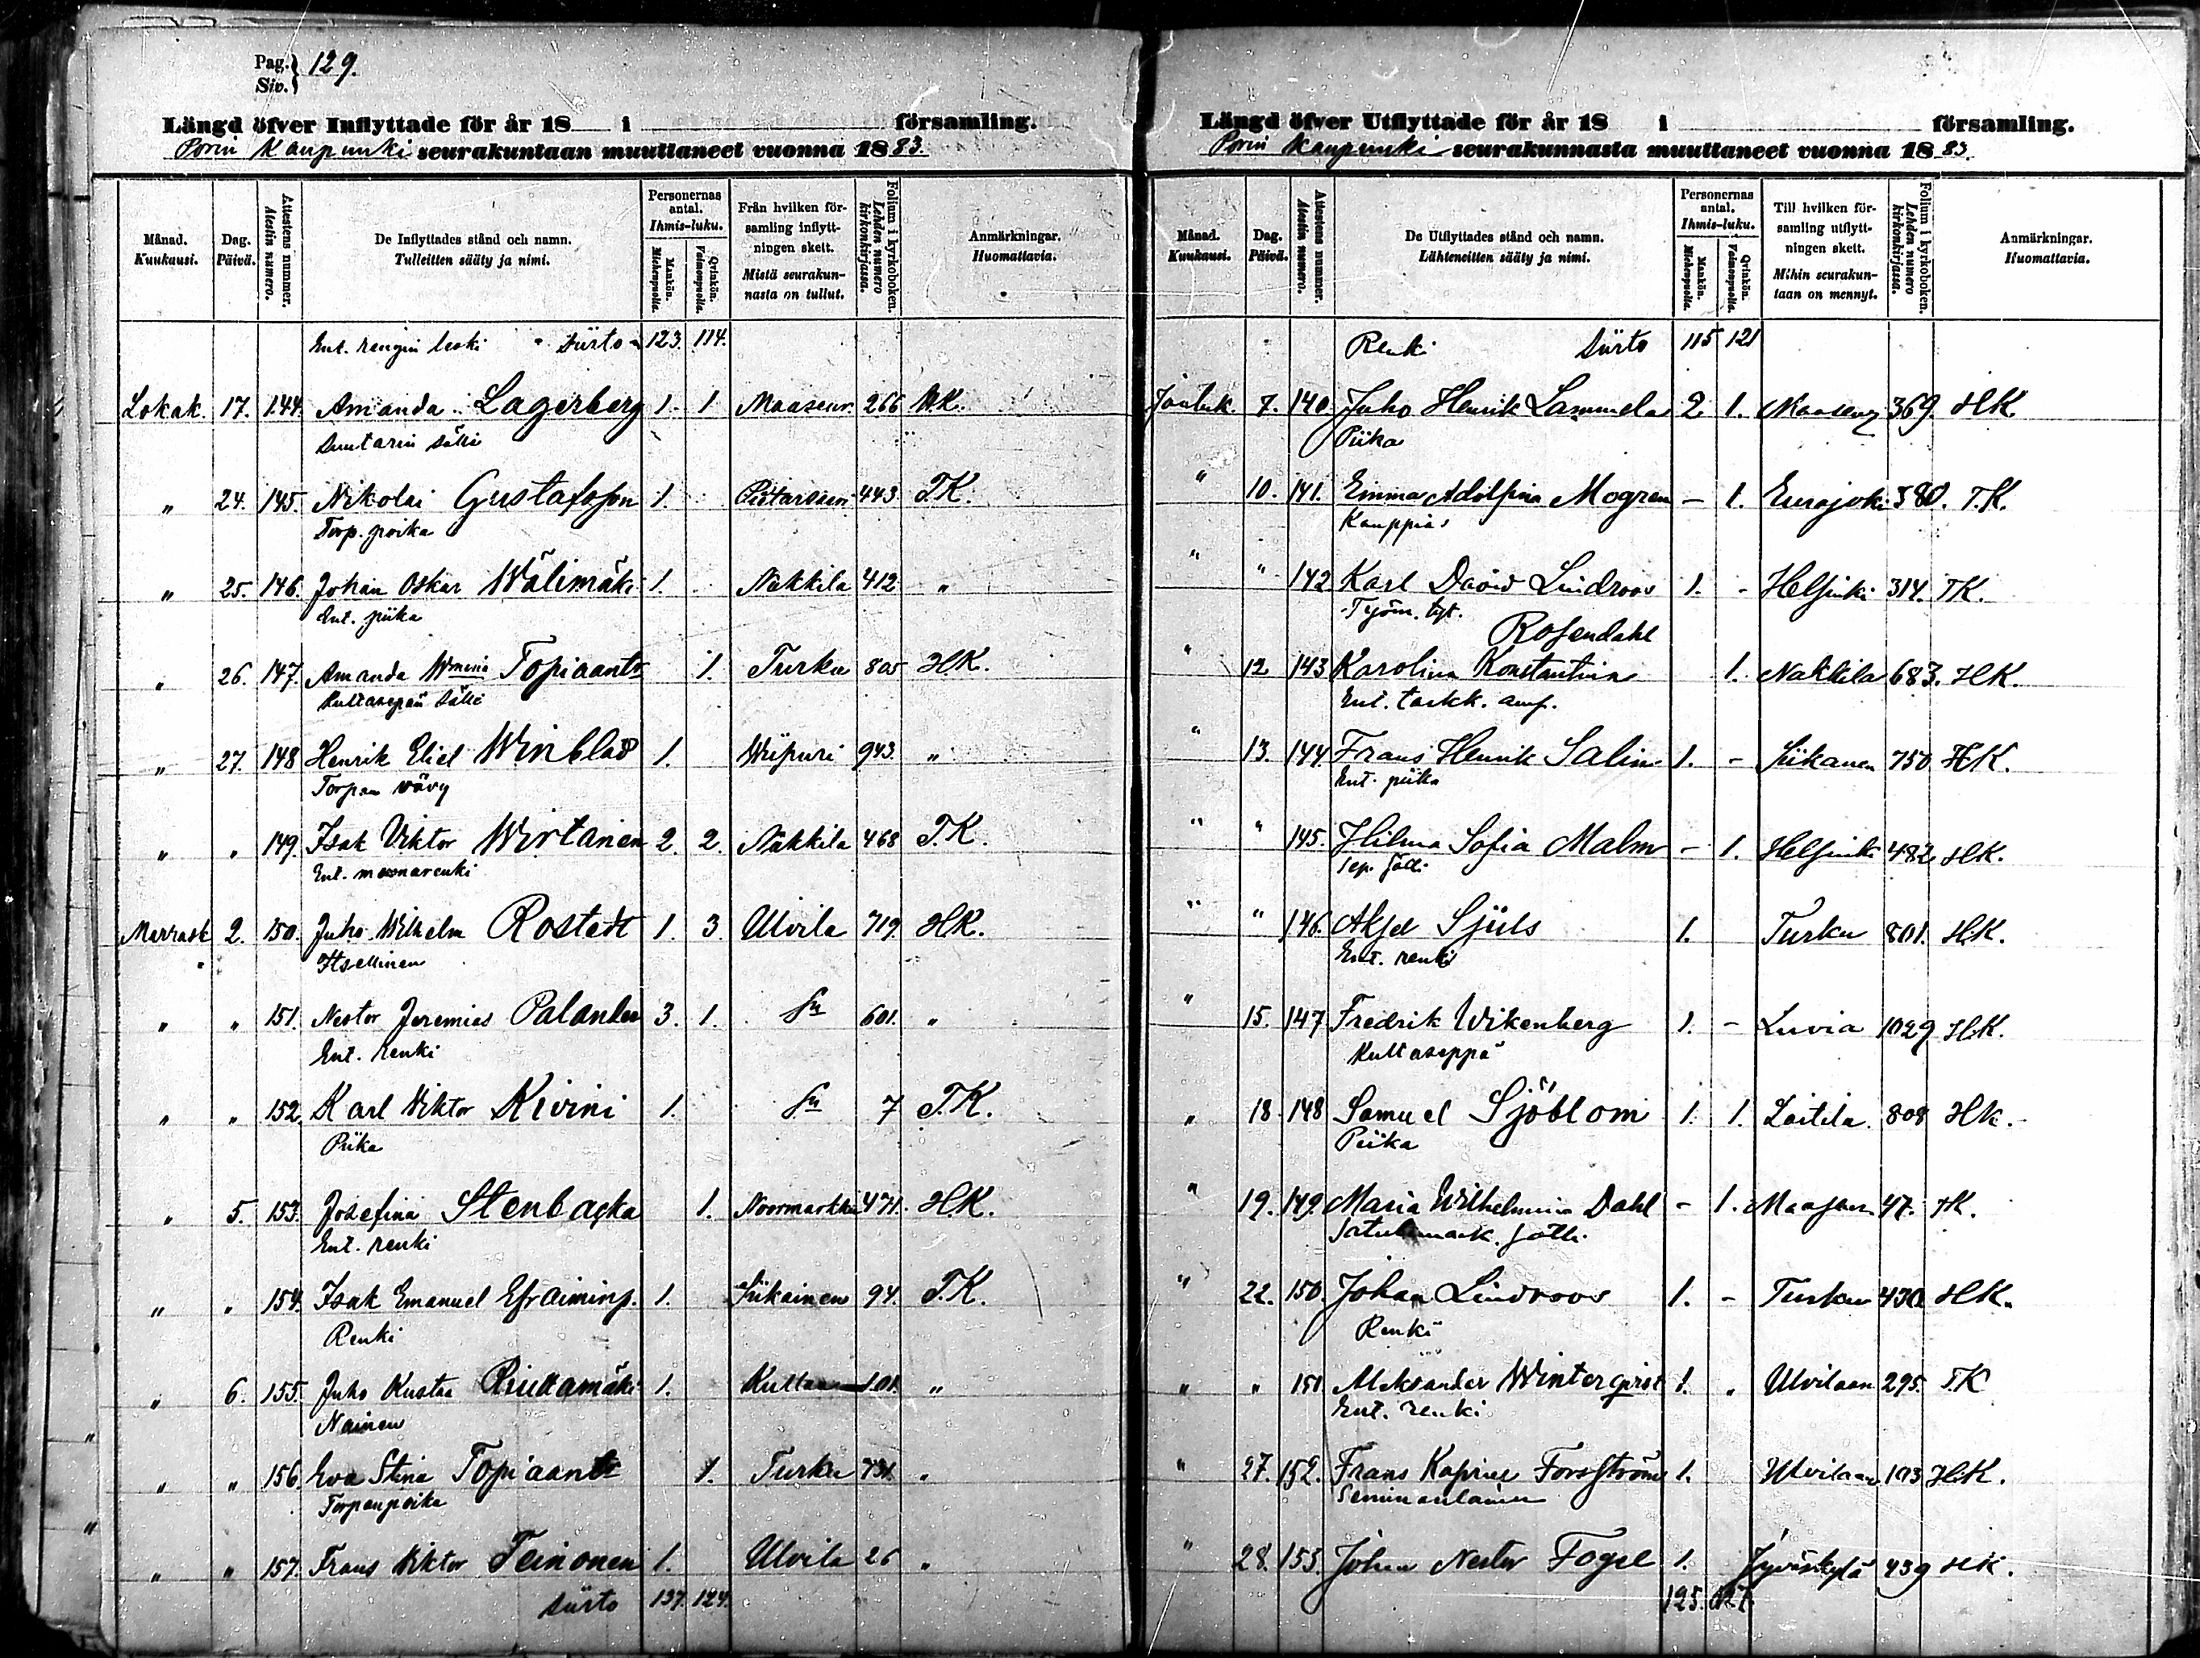 Pag. Siv. } 129.
Längd öfver Inflyttade för år 18 i församling.
Porin Kaupunki seurakuntaan muuttaneet vuonna 1883.
Månad. Kuukausi.
Dag. Päivä.
Attestens nummer. Atestin numero.
De Inflyttades stånd och namn. Tulleitten sääty ja nimi.
Personernas antal. Ihmis-luku.
Mankön. Miehenpuolia.
Qvinkön. Vaimonpuolia.
Från hvilken församling inflyttningen skett. Mistä seurakunnasta on tullut.
Folium i kyrkoboken. Lehden numero kirkonkirjassa.
Anmärkningar. Huomattavia.
Ent. rengin leski Siirto 123. 114.
Lokak. 17. 144. Amanda Lagerberg 1. 1 Maaseur. 266 HK.
Suutarin sälli
" 24. 145. Nikolai Gustafsson 1. Pietarsaari 443. T.K.
Torp. poika
" 25. 146. Johan Oskar Wälimäki 1. Nakkila 412 "
Ent. piika
" 26. 147. Amanda Topiaantr 1. Turku 805 H.K.
Kultasepän sälli
" 27. 148 Henrik Eliel Winblad 1. Wiipuri 943. "
Torpan vävy
" " 149. Isak Viktor Wirtanen 2. 2. Nakkila 468 T.K.
Ent. muonarenki
Marrask 2. 150. Juho Wilhelm Rostedt 1. 3. Ulvila 719. HK.
Itsellinen
" " 151. Nestor Jeremias Palander 3. 1. Sn 601. "
Ent. renki
" " 152. Karl Viktor Kivini 1. Sn 7 T.K.
Piika
" 5. 153. Josefina Stenbacka 1. Noormarkku 471. H.K.
Ent. renki
" " 154. Isak Emanuel Efraiminp. 1. Siikainen 94. T.K.
Renki
" 6. 155. Juho Kustaa Riukamäki 1. Kullaa 101. "
Nainen
" " 156. Eva Stina Topiaantr 1. Turku 731. "
Torpanpoika
" " 157. Frans Viktor Teinonen 1. Ulvila 26 "
Siirto 137. 124.
Längd öfver Utflyttade för år 18 i församling.
Porin Kaupunki seurakunnasta muuttaneet vuonna 1883.
Månad. Kuukausi.
Dag. Päivä.
Attestens nummer. Atestin numero.
De Utflyttades stånd och namn. Lähteneitten sääty ja nimi.
Personernas antal. Ihmis-luku.
Mankön. Miehenpuolia.
Qvinkön. Vaimonpuolia.
Till hvilken församling utflyttningen skett. Mihin seurakuntaan on mennyt.
Folium i kyrkoboken. Lehden numero kirkonkirjassa.
Anmärkningar. Huomattavia.
Renki Siirto 115 121
Jouluk. 7. 140. Juho Henrik Lammela 2 1. Maaseur 369. HK
Piika
" 10. 141. Emma Adolfina Mogren - 1. Eurajoki 380. T.K.
Kauppias
" " 142 Karl David Lindroos 1. - Helsinki 314. TK.
Työm. tyt. Rosendahl
" 12 143 Karolina Konstantina 1. Nakkila 683. HK.
Ent. tarkk. auf.
" 13. 144 Frans Henrik Salin 1. - Siikanen 750 HK.
Ent. piika
" " 145. Hilma Sofia Malm - 1. Helsinki 482 HK.
Sep. sälli
" " 146. Aksel Sjüls 1. Turku 801. HK.
Ent. renki
" 15. 147 Fredrik Wikenberg 1. - Luvia 1029 HK.
Kultaseppä
" 18 148 Samuel Sjöblom 1. 1. Laitila 808 HK.
Piika
" 19. 149. Maria Wilhelmina Dahl - 1. Maaseur. 47. TK.
Satulamaak. sälli
" 22. 150. Johan Lindroos 1. - Turkuu 430 HK.
Renki
" " 151 Aleksander Winterqvist 1. " Ulvilaan 295. T.K
Ent. renki
" 27. 152. Frans Kapriel Forsström 1. Ulvilaan 103 HK.
Seminarilainen
" 28. 153. Johan Nestor Fogel 1. Jyväskylä 439 HK.
125. 127.